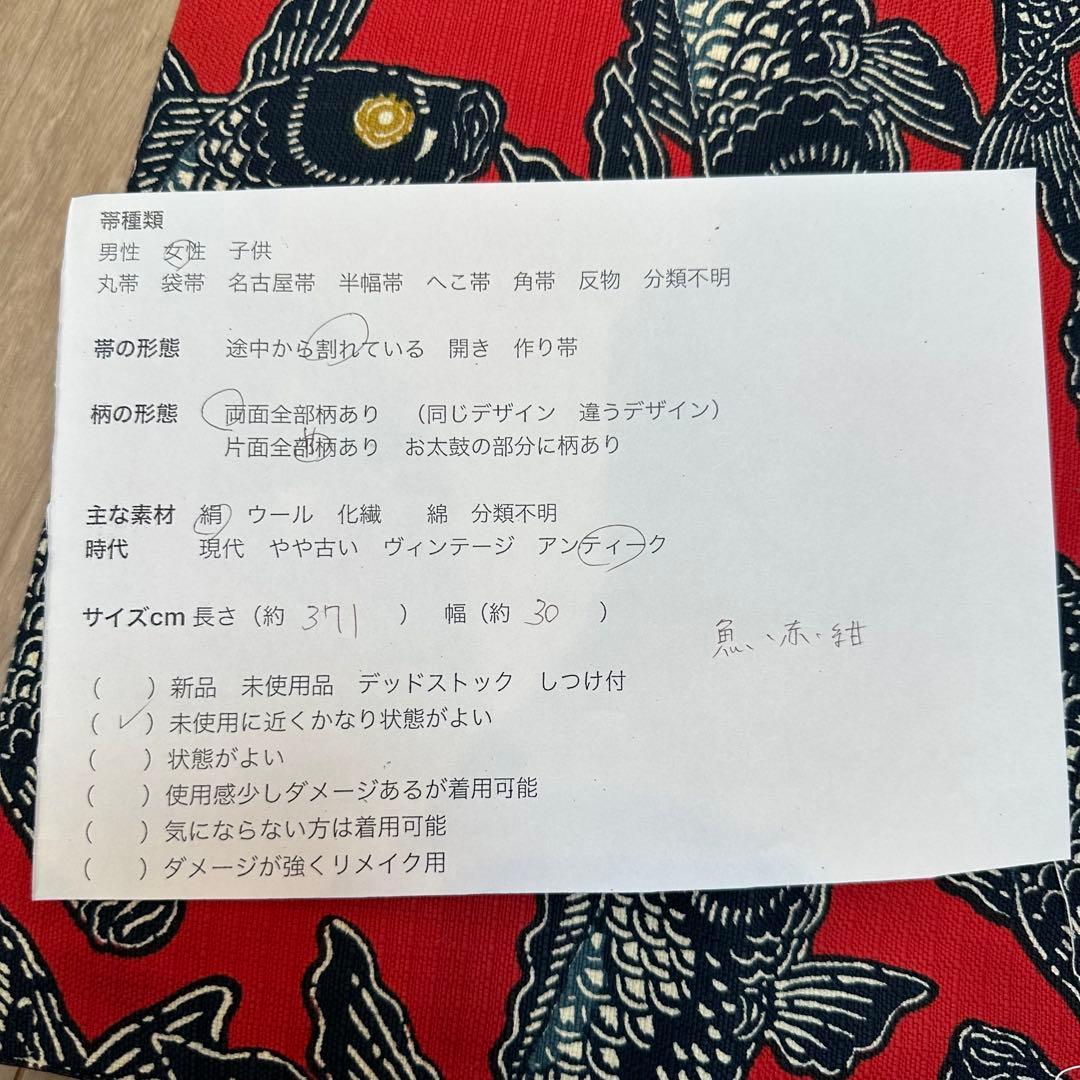 帯種類
男性 女性 子供
丸帯 袋帯 名古屋帯 半幅帯 へこ帯 角帯 反物 分類不明
帯の形態 途中から割れている 開き 作り帯
柄の形態 両面全部柄あり (同じデザイン 違うデザイン)
片面全部柄あり お太鼓の部分に柄あり
主な素材 絹 ウール 化繊 綿 分類不明
時代 現代 やや古い ヴィンテージ アンティーク
サイズcm 長さ(約 371 ) 幅(約 30 )
魚、、赤、紺
( )新品 未使用品 デッドストック しつけ付
(✓)未使用に近くかなり状態がよい
( )状態がよい
( )使用感少しダメージあるが着用可能
( )気にならない方は着用可能
( )ダメージが強くリメイク用